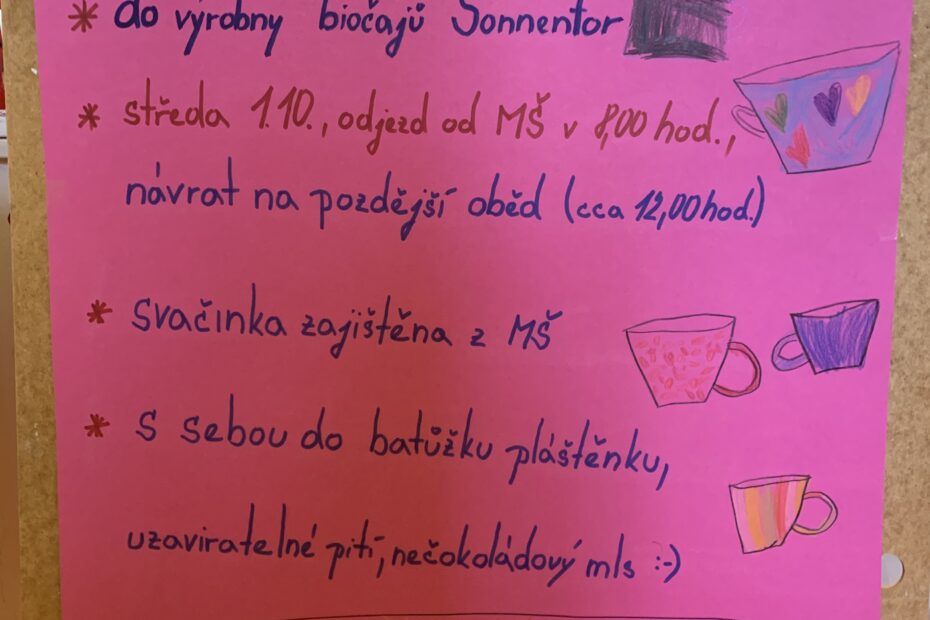 * do výrobny biočajů Sonnentor
* středa 1.10., odjezd od MŠ v 8,00 hod.,
návrat na pozdější oběd (cca 12,00 hod.)
* svačinka zajištěna z MŠ
* s sebou do batůžku pláštěnku,
uzaviratelné pití, nečokoládový mls :-)